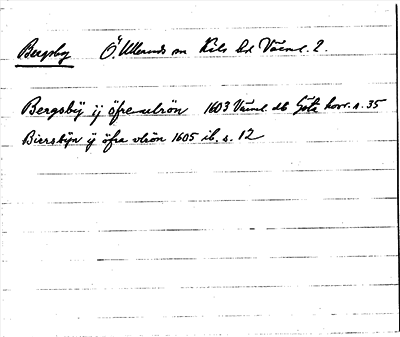 Bergsby Ö. Ullerud sn Kils hd Värml. 2.
Bergsbÿ ij öfre ulrön 1603 Värml db Göta hovr. s. 35
Biersbÿn ij öfra vlrön 1605 ib. s. 12